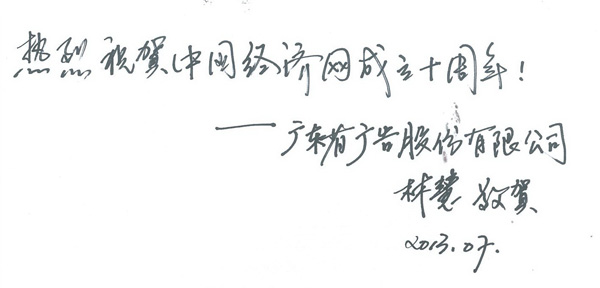 热烈祝贺中国经济网成立十周年!
——广东省广告股份有限公司
林慧 敬贺
2013.07.